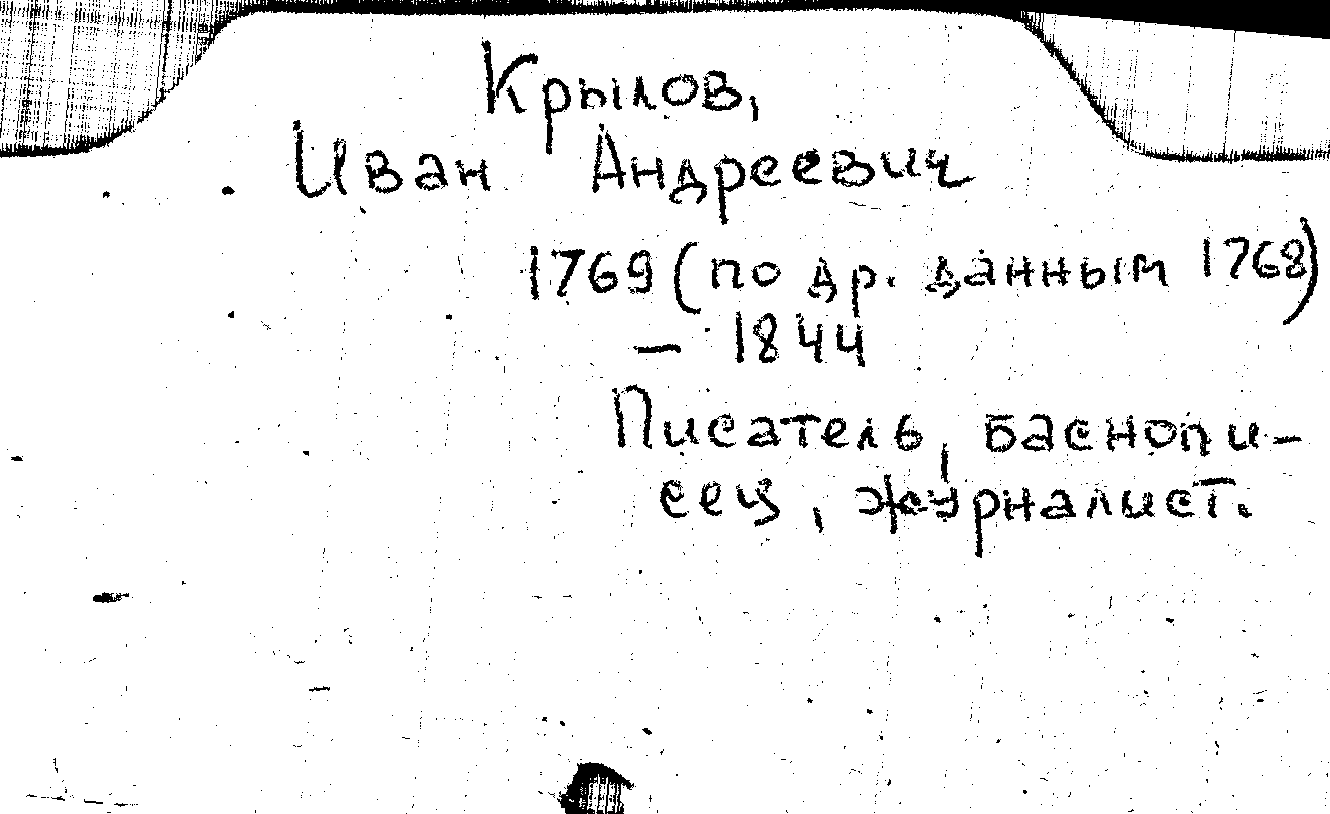 Крылов,
Иван Андреевич
1769 (по др. данным 1768)
– 1844
Писатель, баснопи-
сец, журналист.